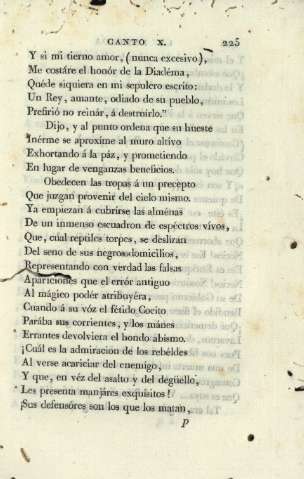 CANTO X. 225
Y si mi tierno amor, (nunca excesivo),
Me costáre el honór de la Diadéma,
Quéde siquiera en mi sepulcro escrito:
Un Rey, amante, odiado de su pueblo,
Prefirió no reinár, á destruirlo."
Dijo, y al punto ordena que su hueste
Inérme se aproxime al muro altivo
Exhortando á la páz, y prometiendo
En lugar de venganzas beneficios.
Obedecen las tropas á un precepto
Que juzgan provenir del cielo mismo.
Ya empiezan á cubrirse las alménas
De un inmenso escuadron de espectros vivos,
Que, cuál reptíles torpes, se deslizan
Del seno de sus negros domicilios,
Representando con verdad las falsas
Apariciones que el errór antiguo
Al mágico podér atribuyéra,
Cuando á su vóz el fétido Cocito
Parába sus corrientes, y los mánes
Errantes devolviera el hondo abismo.
¡Cuál es la admiracion de los rebéldes
Al verse acariciar del enemigo,
Y que, en véz del asalto y del degüello,
Les presenta manjáres exquisitos!
Sus defensóres son los que los matan,
P